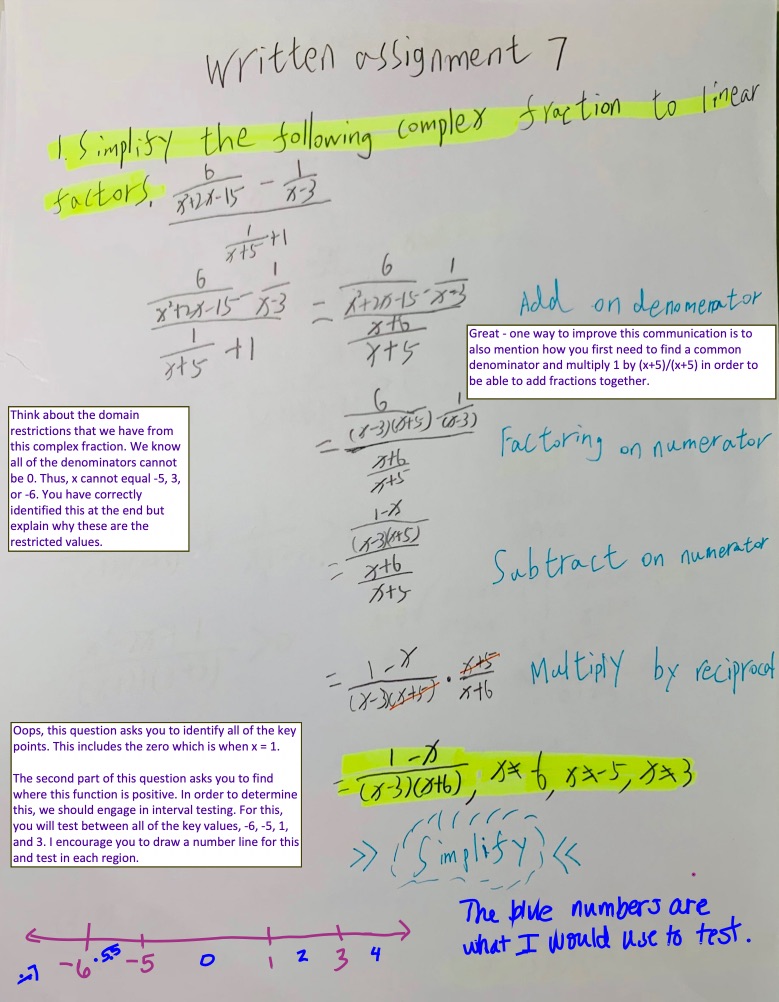 Written assignment 7
1. Simplify the following complex fraction to linear
factors. \frac{\frac{6}{x²+2x-15} - \frac{1}{x-3}}{\frac{1}{x+5} + 1}
\frac{\frac{6}{x²+2x-15} - \frac{1}{x-3}}{\frac{1}{x+5} + 1} = \frac{\frac{6}{x²+2x-15} - \frac{1}{x-3}}{\frac{x+6}{x+5}} Add on denomerator
Great - one way to improve this communication is to
also mention how you first need to find a common
denominator and multiply 1 by (x+5)/(x+5) in order to
be able to add fractions together.
= \frac{\frac{6}{(x-3)(x+5)} - \frac{1}{(x-3)}}{\frac{x+6}{x+5}} Factoring on numerator
Think about the domain
restrictions that we have from
this complex fraction. We know
all of the denominators cannot
be 0. Thus, x cannot equal -5, 3,
or -6. You have correctly
identified this at the end but
explain why these are the
restricted values.
= \frac{\frac{1-x}{(x-3)(x+5)}}{\frac{x+6}{x+5}} Subtract on numerator
= \frac{1-x}{(x-3)(x+5)} · \frac{x+5}{x+6} Multiply by reciprocal
Oops, this question asks you to identify all of the key
points. This includes the zero which is when x = 1.
The second part of this question asks you to find
where this function is positive. In order to determine
this, we should engage in interval testing. For this,
you will test between all of the key values, -6, -5, 1,
and 3. I encourage you to draw a number line for this
and test in each region.
= \frac{1-x}{(x-3)(x+6)}, x≠-6, x≠-5, x≠3
>> (Simplify) <<
The blue numbers are
what I would use to test.
-7 -6 -5.5 -5 0 1 2 3 4